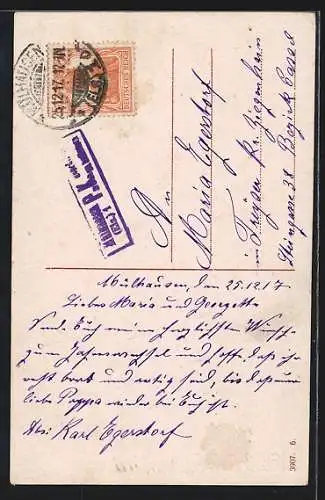 MÜLHAUSEN
25.12.17. 12-1N
DEUTSCHES REICH
An
Maria Egerstorf
in Treysa Kr. Ziegenhain
Steingasse 38 Bezirk Cassel
Mülhausen, den 25.12.17
Liebe Maria und Georgette
Sende Euch meine herzlichste Wünsche
zum Jahreswechsel und hoffe, dass ihr
recht brav und artig seid, bis dass euer
liebe Pappa wieder bei Euch ist.
Karl Egerstorf
3907. 6.